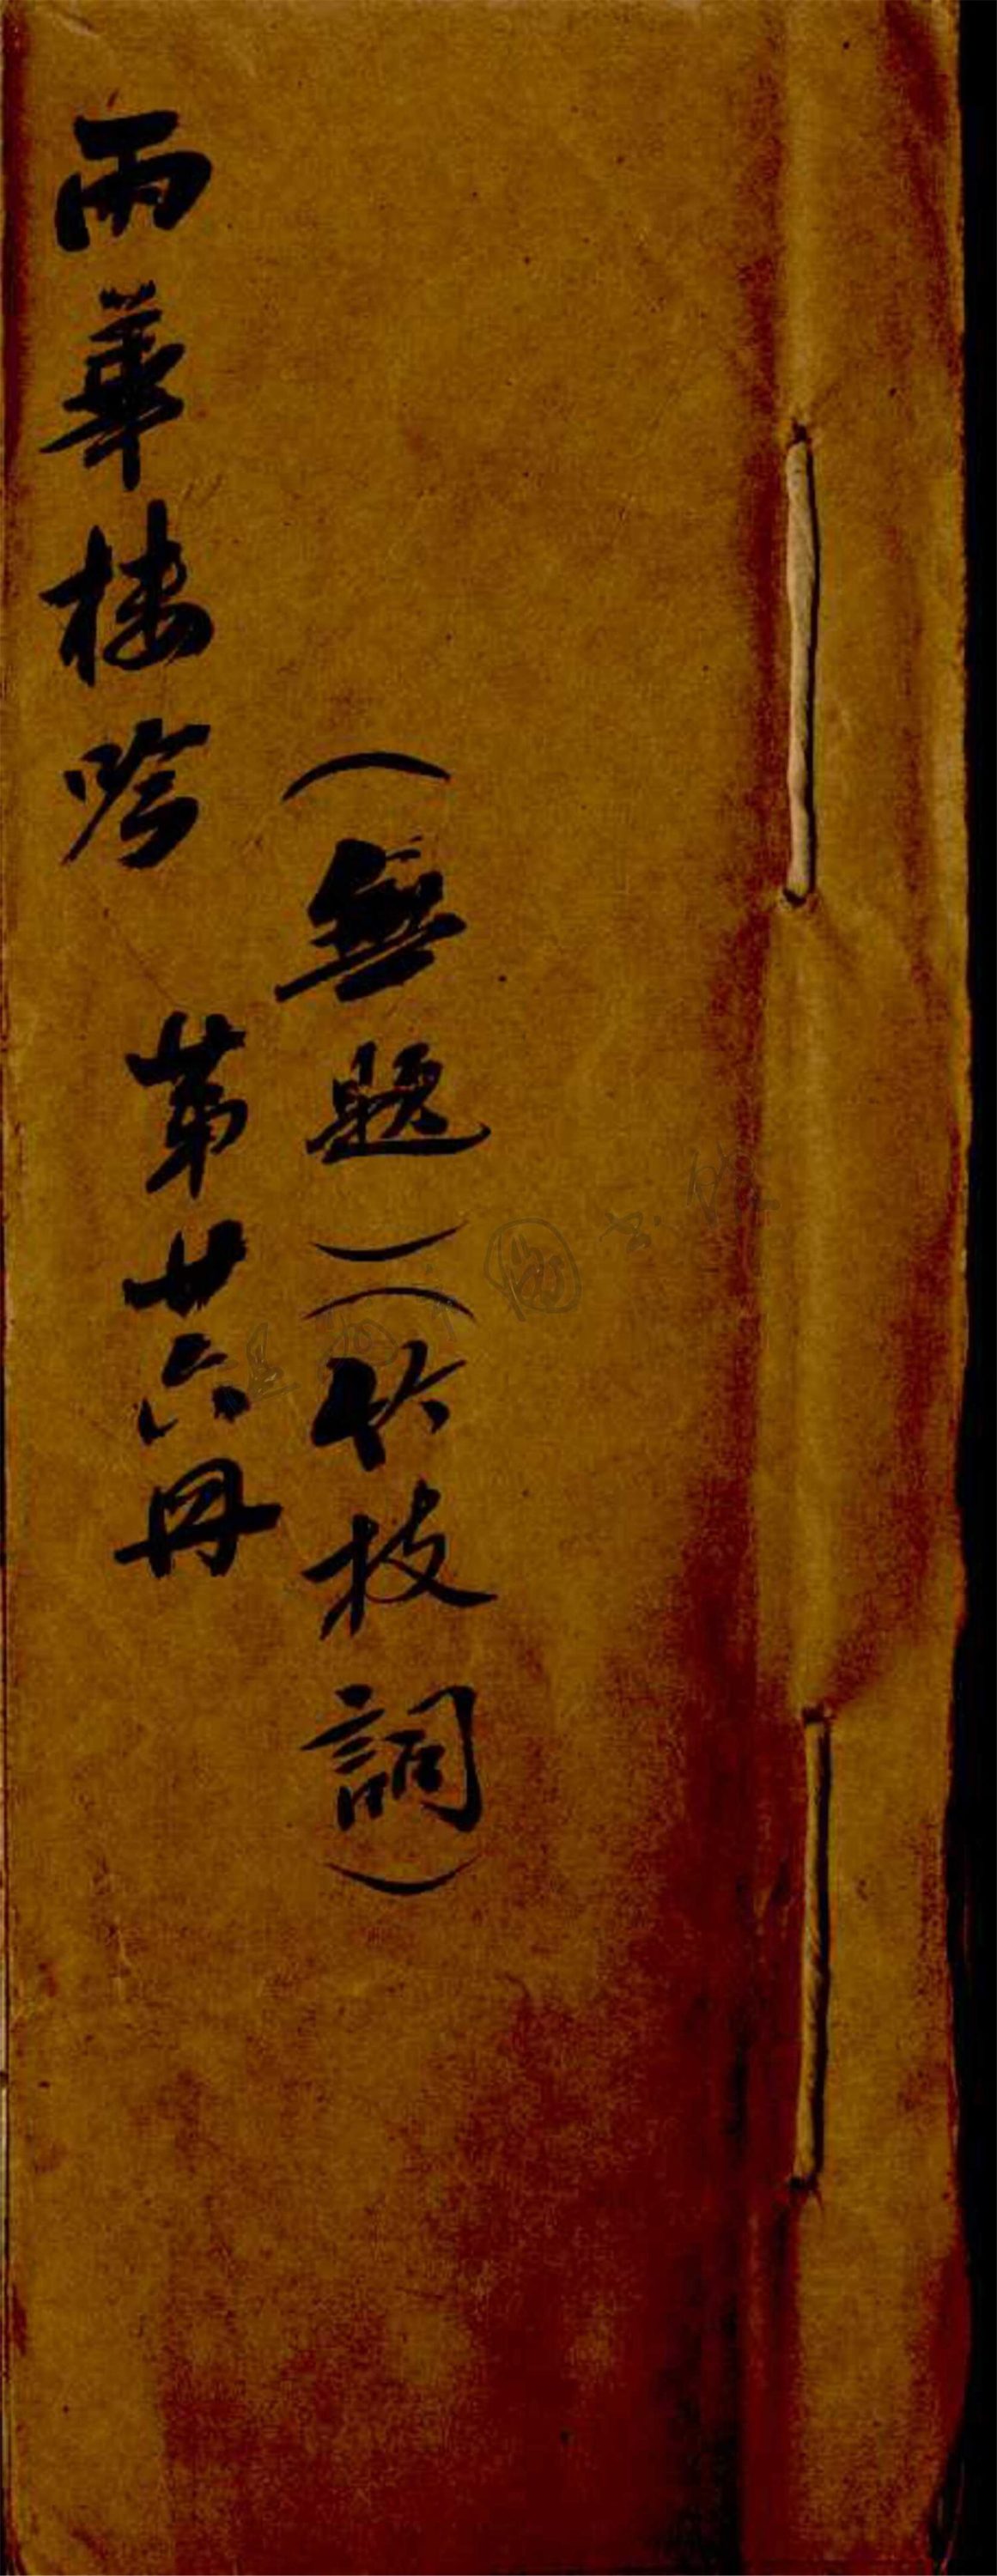 (無題)(竹枝詞)
雨華樓吟 第廿六冊